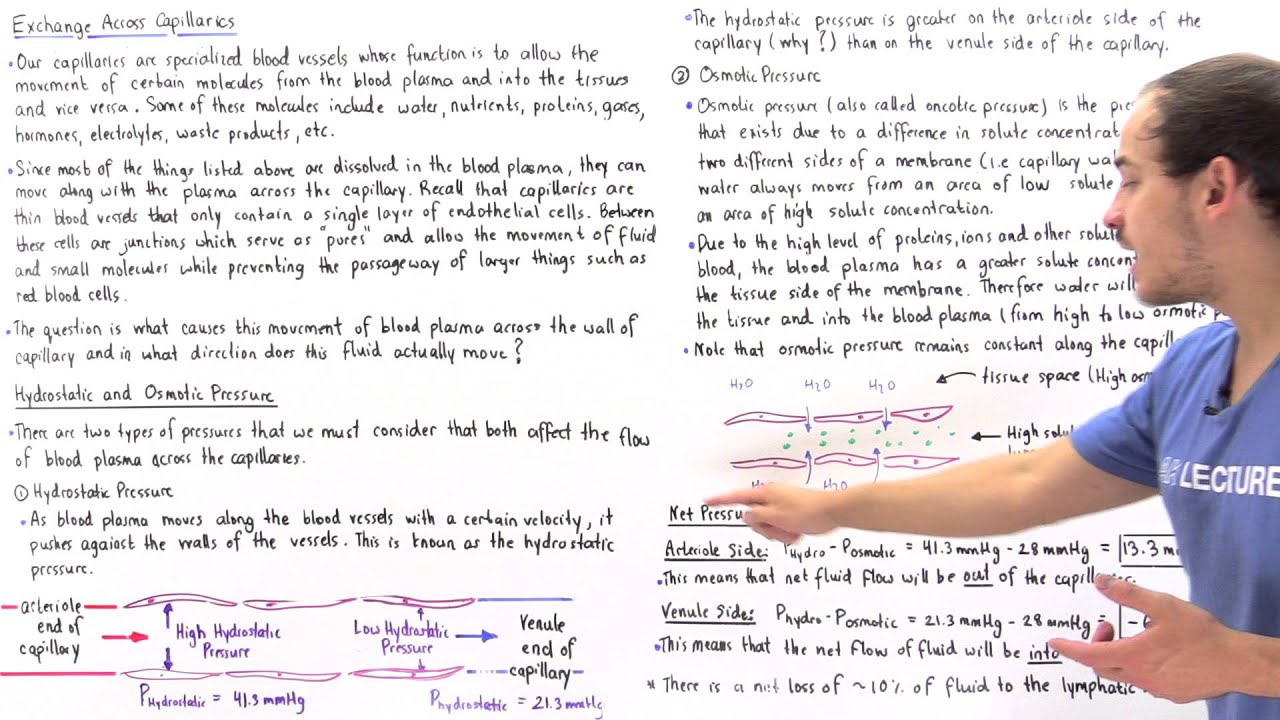 Exchange Across Capillaries
•Our capillaries are specialized blood vessels whose function is to allow the
movement of certain molecules from the blood plasma and into the tissues
and vice versa. Some of these molecules include water, nutrients, proteins, gases,
hormones, electrolytes, waste products, etc.
•Since most of the things listed above are dissolved in the blood plasma, they can
move along with the plasma across the capillary. Recall that capillaries are
thin blood vessels that only contain a single layer of endothelial cells. Between
these cells are junctions which serve as "pores" and allow the movement of fluid
and small molecules while preventing the passageway of larger things such as
red blood cells.
•The question is what causes this movement of blood plasma across the wall of
capillary and in what direction does this fluid actually move?
Hydrostatic and Osmotic Pressure
•There are two types of pressures that we must consider that both affect the flow
of blood plasma across the capillaries.
① Hydrostatic Pressure
•As blood plasma moves along the blood vessels with a certain velocity, it
pushes against the walls of the vessels. This is known as the hydrostatic
pressure.
arteriole
end of
capillary
High Hydrostatic
Pressure
Low Hydrostatic
Pressure
Venule
end of
capillary
PHydrostatic = 41.3 mmHg
Phydrostatic = 21.3 mmHg
•The hydrostatic pressure is greater on the arteriole side of the
capillary (why?) than on the venule side of the capillary.
② Osmotic Pressure
•Osmotic pressure (also called oncotic pressure) is the
that exists due to a difference in solute
two different sides of a membrane (i.e capillary
water always moves from an area of low solute
an area of high solute concentration.
•Due to the high level of proteins, ions and other
blood, the blood plasma has a greater solute
the tissue side of the membrane. Therefore water
the tissue and into the blood plasma (from high to low osmotic
•Note that osmotic pressure remains constant along the
H2O H2O H2O
tissue space (High
High
H2O H2O
Net
Arteriole Side: PHydro - Posmotic = 41.3 mmHg - 28 mmHg = 13.3
•This means that net fluid flow will be out of the
Venule Side: Phydro - Posmotic = 21.3 mmHg - 28 mmHg =
•This means that the net flow of fluid will be into
* There is a net loss of ~10% of fluid to the lymphatic
LECTURE